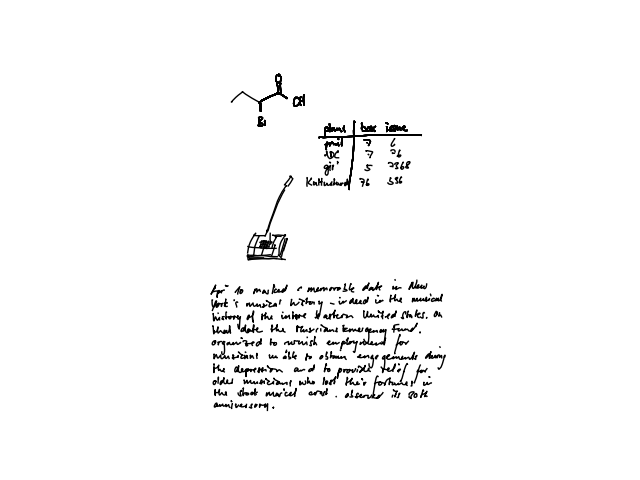 O
OH
Br
plans box issue
7 6
ADC 7 76
5 7368
76 536
Apr 10 marked a memorable date in New
York's musical history - indeed in the musical
history of the entire eastern United States. On
that date the Musicians Emergency Fund,
organized to furnish employment for
musicians unable to obtain engagements during
the depression and to provide relief for
older musicians who lost their fortunes in
the stock market crash, observed its 20th
anniversary.